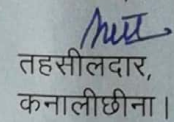 तहसीलदार,
कनालीछीना।